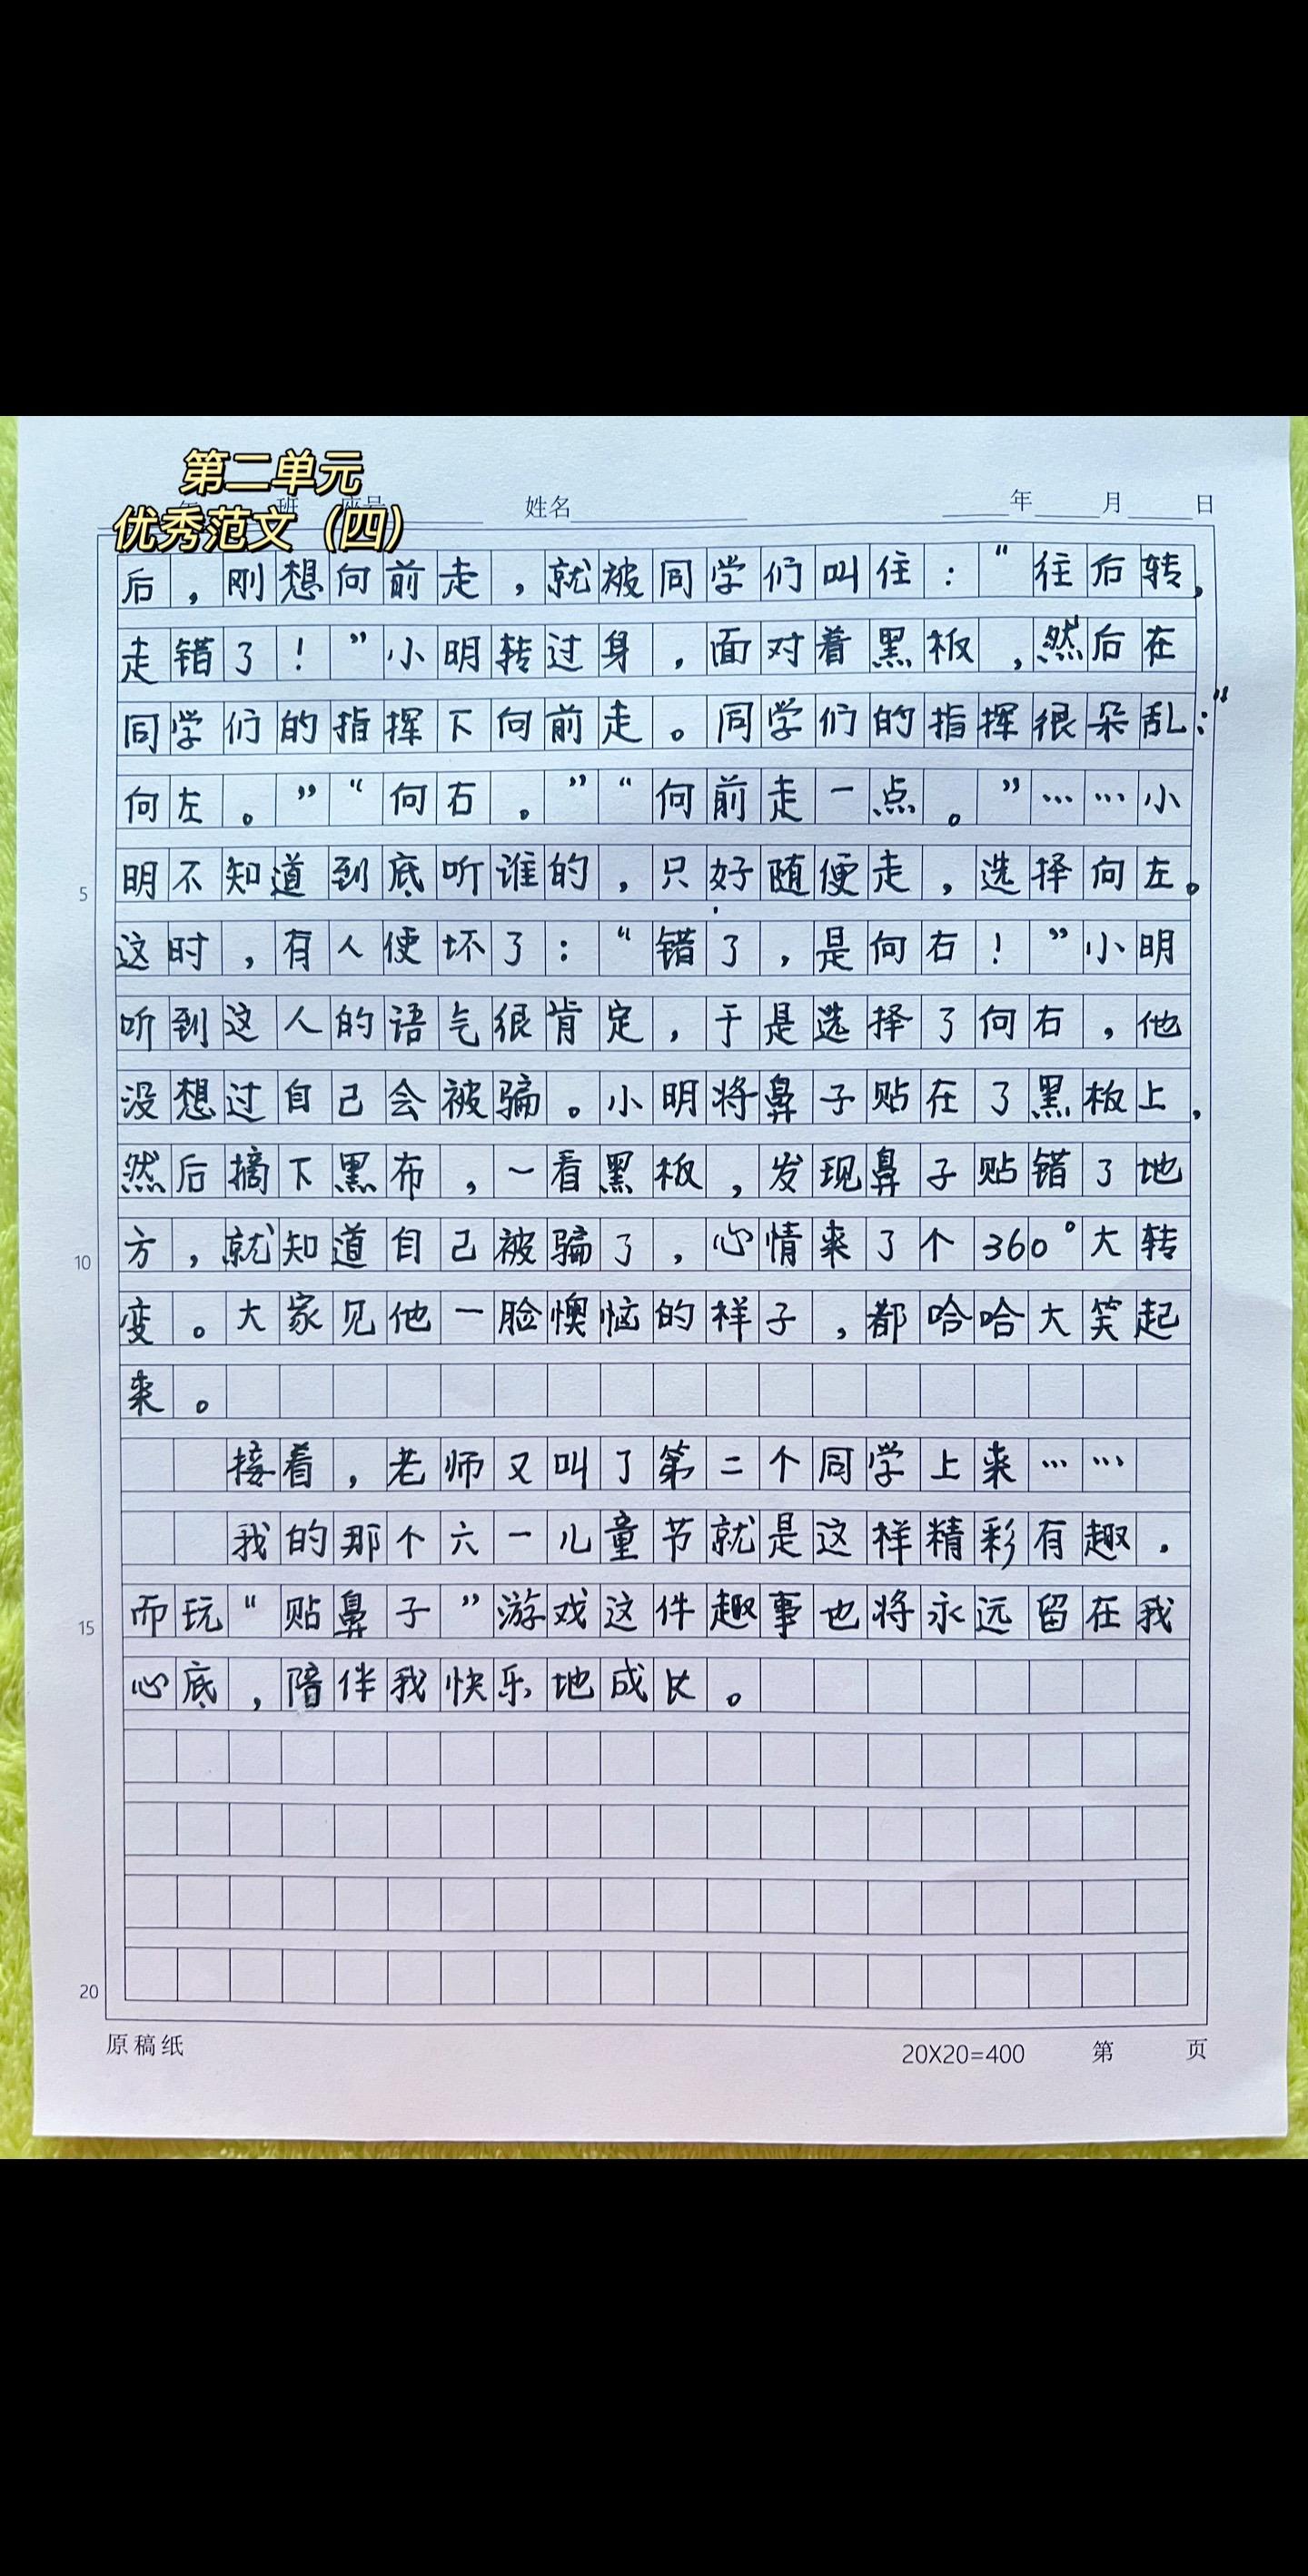 第二单元
优秀范文（四）
班 姓名 年 月 日
后，刚想向前走，就被同学们叫住：“往后转，
走错了！”小明转过身，面对着黑板，然后在
同学们的指挥下向前走。同学们的指挥很朵乱：“
向左。”“向右。”“向前走一点。”……小
5 明不知道到底听谁的，只好随便走，选择向左。
这时，有人使坏了：“错了，是向右！”小明
听到这人的语气很肯定，于是选择了向右，他
没想过自己会被骗。小明将鼻子贴在了黑板上，
然后摘下黑布，一看黑板，发现鼻子贴错了地
10 方，就知道自己被骗了，心情来了个360°大转
变。大家见他一脸懊恼的样子，都哈哈大笑起
来。
接着，老师又叫了第二个同学上来……
我的那个六一儿童节就是这样精彩有趣．
15 而玩“贴鼻子”游戏这件趣事也将永远留在我
心底，陪伴我快乐地成长。
20
原稿纸 20X20=400 第 页